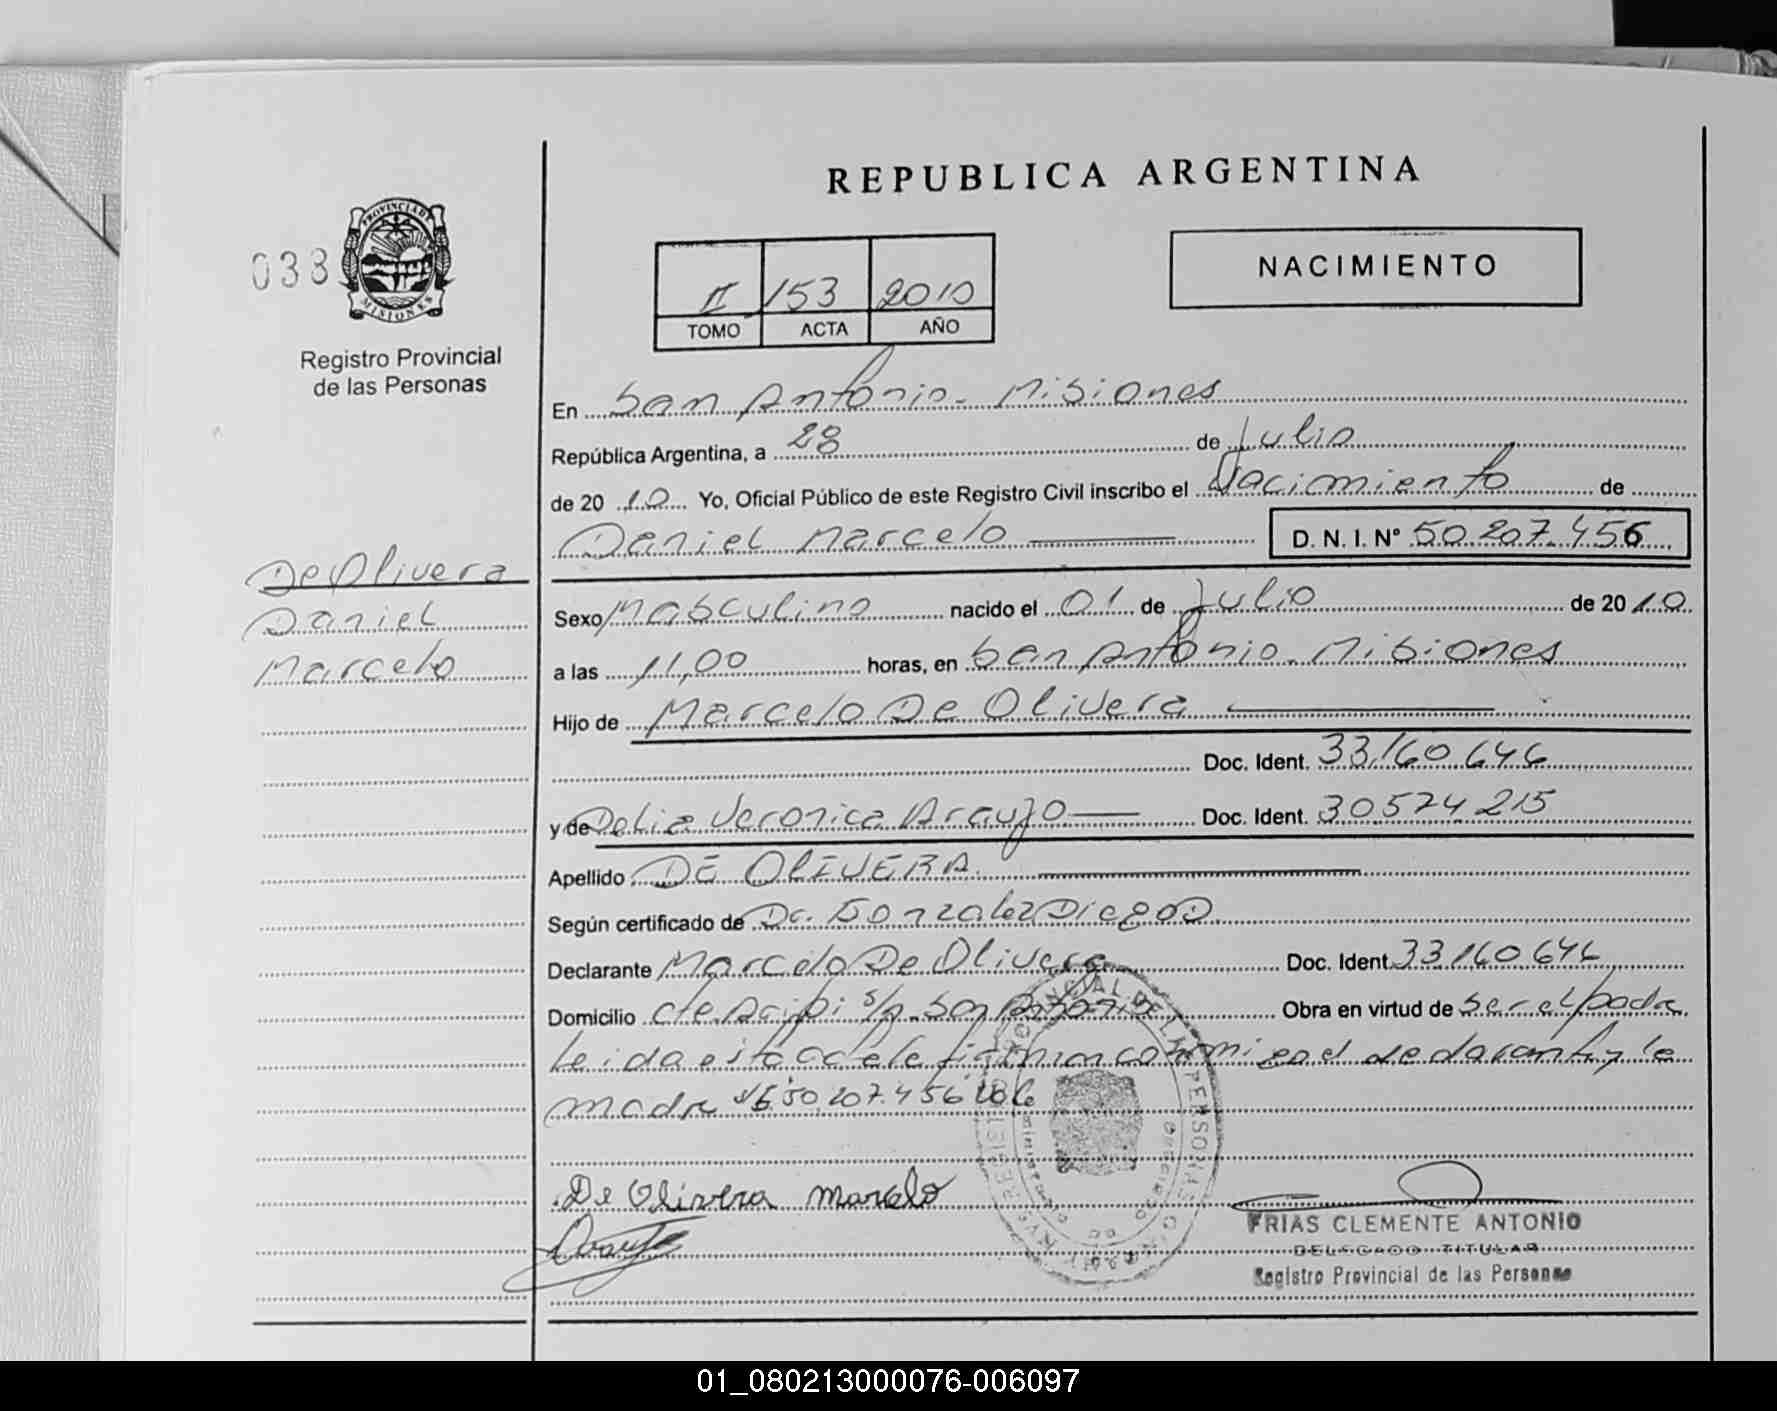 REPUBLICA ARGENTINA
038
PROVINCIA DE MISIONES
Registro Provincial
de las Personas
II 153 2010
TOMO ACTA AÑO
NACIMIENTO
En San Antonio - Misiones
República Argentina, a 28 de Julio
de 2010 Yo, Oficial Público de este Registro Civil inscribo el Nacimiento de
Daniel Marcelo D. N. I. Nº 50.207.456
De Olivera
Daniel
Marcelo
Sexo Masculino nacido el 01 de Julio de 2010
a las 11,00 horas, en San Antonio - Misiones
Hijo de Marcelo De Olivera
Doc. Ident. 33.160.646
y de Delia Veronica Araujo Doc. Ident. 30574215
Apellido DE OLIVERA
Según certificado de Dr. Gonzalez Diego D
Declarante Marcelo De Olivera Doc. Ident. 33.160.646
Domicilio s/n San Antonio Obra en virtud de ser el padre
Leida esta acta la firman conmigo el declarante y la
madre s/b 50.207.456 Vale
De Olivera Marcelo
FRIAS CLEMENTE ANTONIO
DELEGADO TITULAR
Registro Provincial de las Personas
01_080213000076-006097